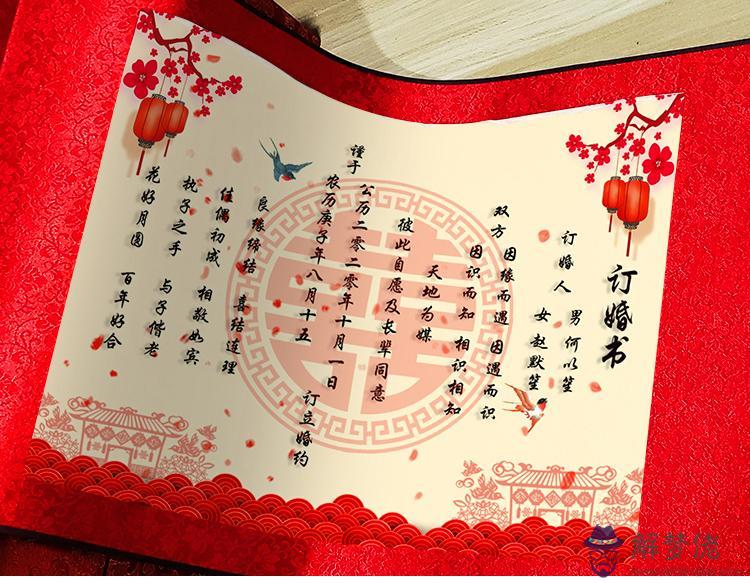 订婚书
订婚人 男何以笙
女赵默笙
双方 因缘而遇 因遇而识
因识而知 相识相知
天地为媒
彼此自愿及长辈同意
谨于 公历二零二零年十月一日
农历庚子年八月十五 订立婚约
良缘缔结 喜结连理
佳偶初成 相敬如宾
执子之手 与子偕老
花好月圆 百年好合
解梦佬